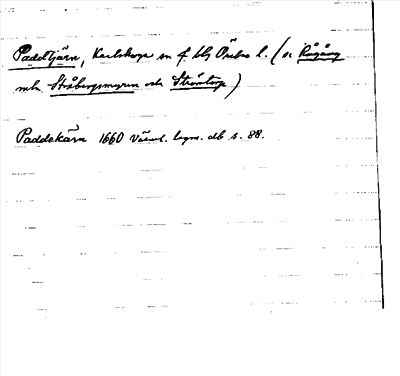 Paddtjärn, Karlskoga sn f. blj Örebro l. (se Rågång
mh Stråbergsmyren och Ströntorp)
Paddekärn 1660 Värml. lagm. db s. 88.